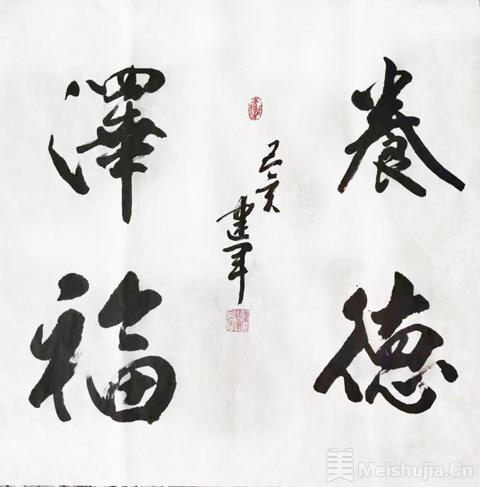 養德
己亥
建军
澤福
美 Meishujia.Cn